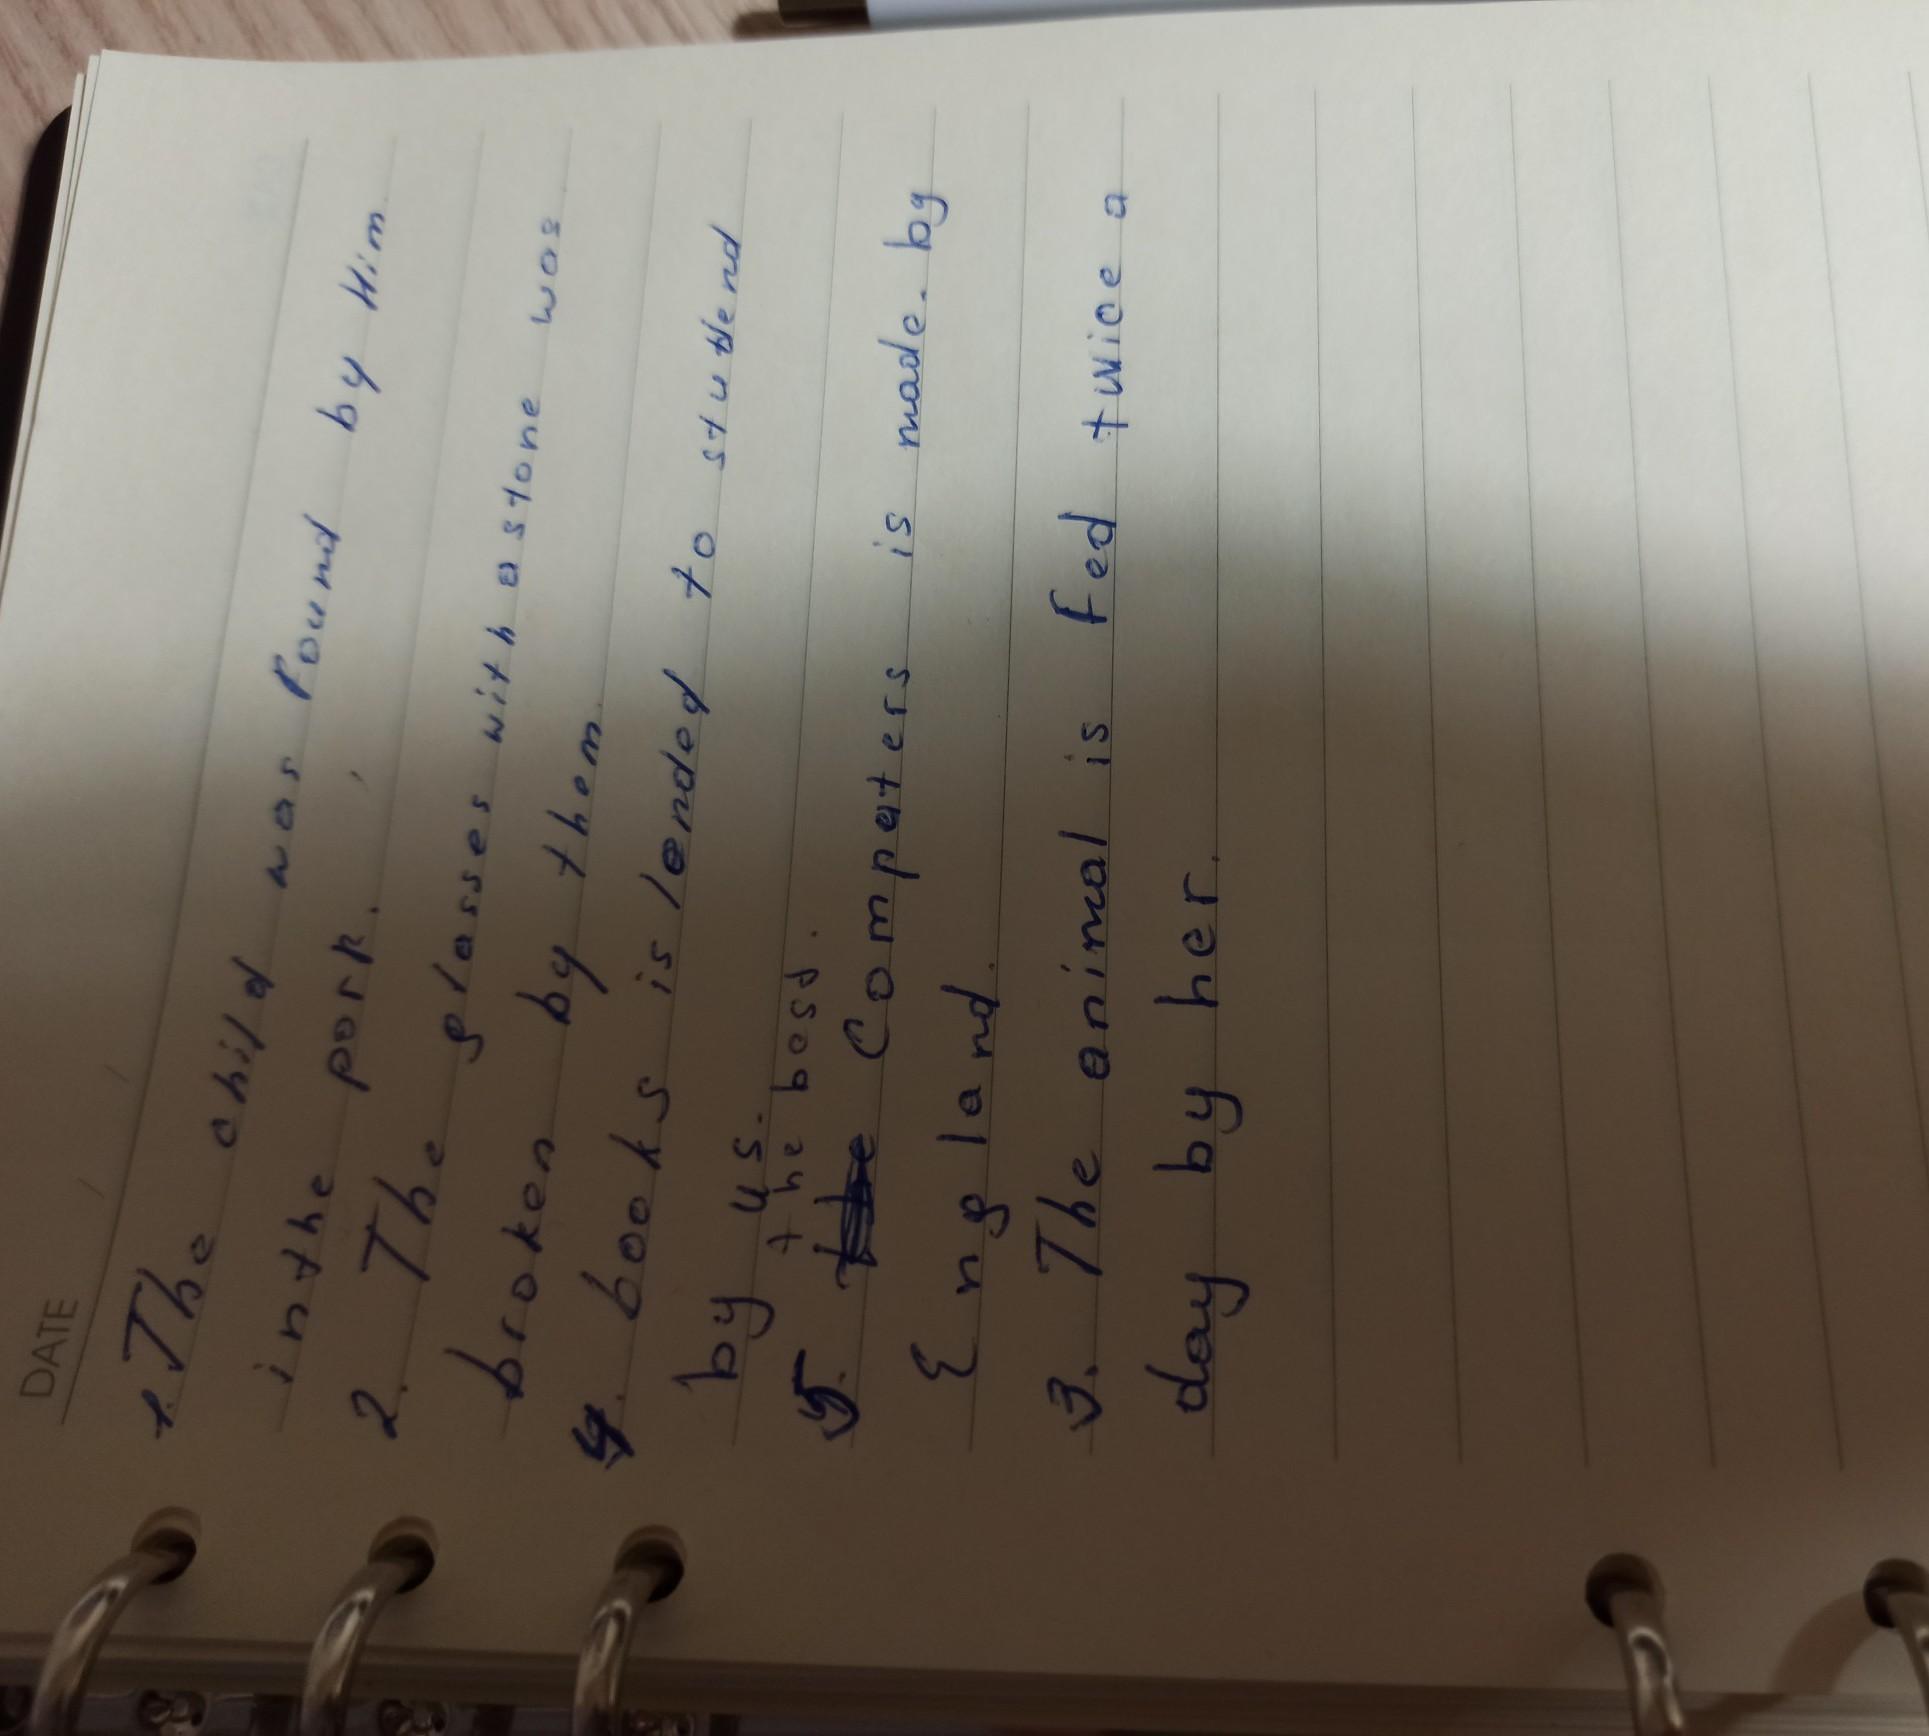 DATE / /
1. The child was found by Him
in the park.
2. The glasses with a stone was
broken by them.
4. books is lended to stutend
by us.
the best.
5. the Compaters is made by
England.
3. The animal is fed twice a
day by her.